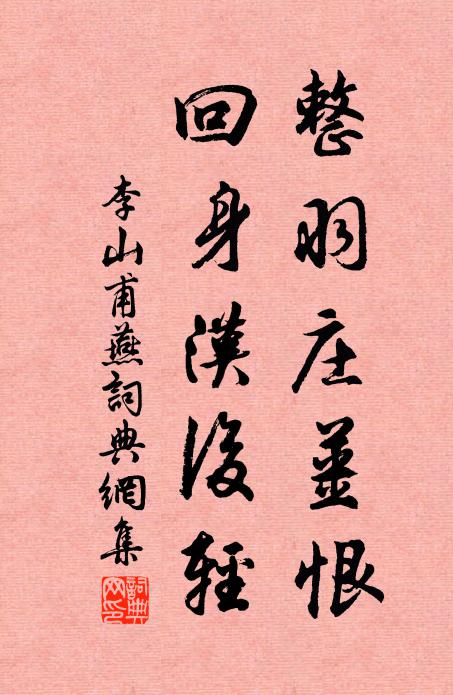 整羽庄薑恨
回身漢後輕
李山甫燕詞典網集
詞典网印